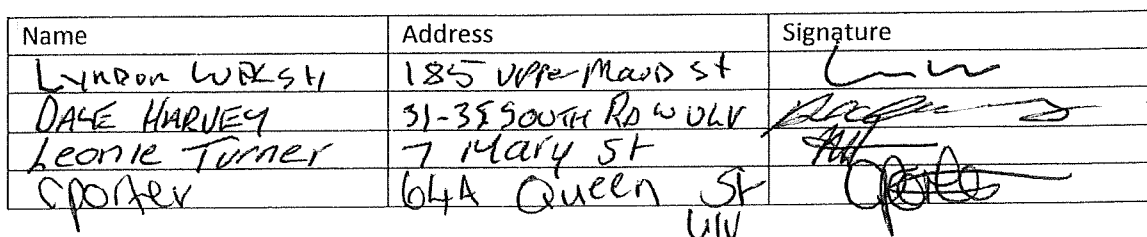 Name Address Signature
Lyndon Walsh 185 Upper Maud St
DALE HARVEY 31-35 SOUTH RD W ULV
Leonie Turner 7 Mary St
C Porter 64A Queen St CPorter
ULV